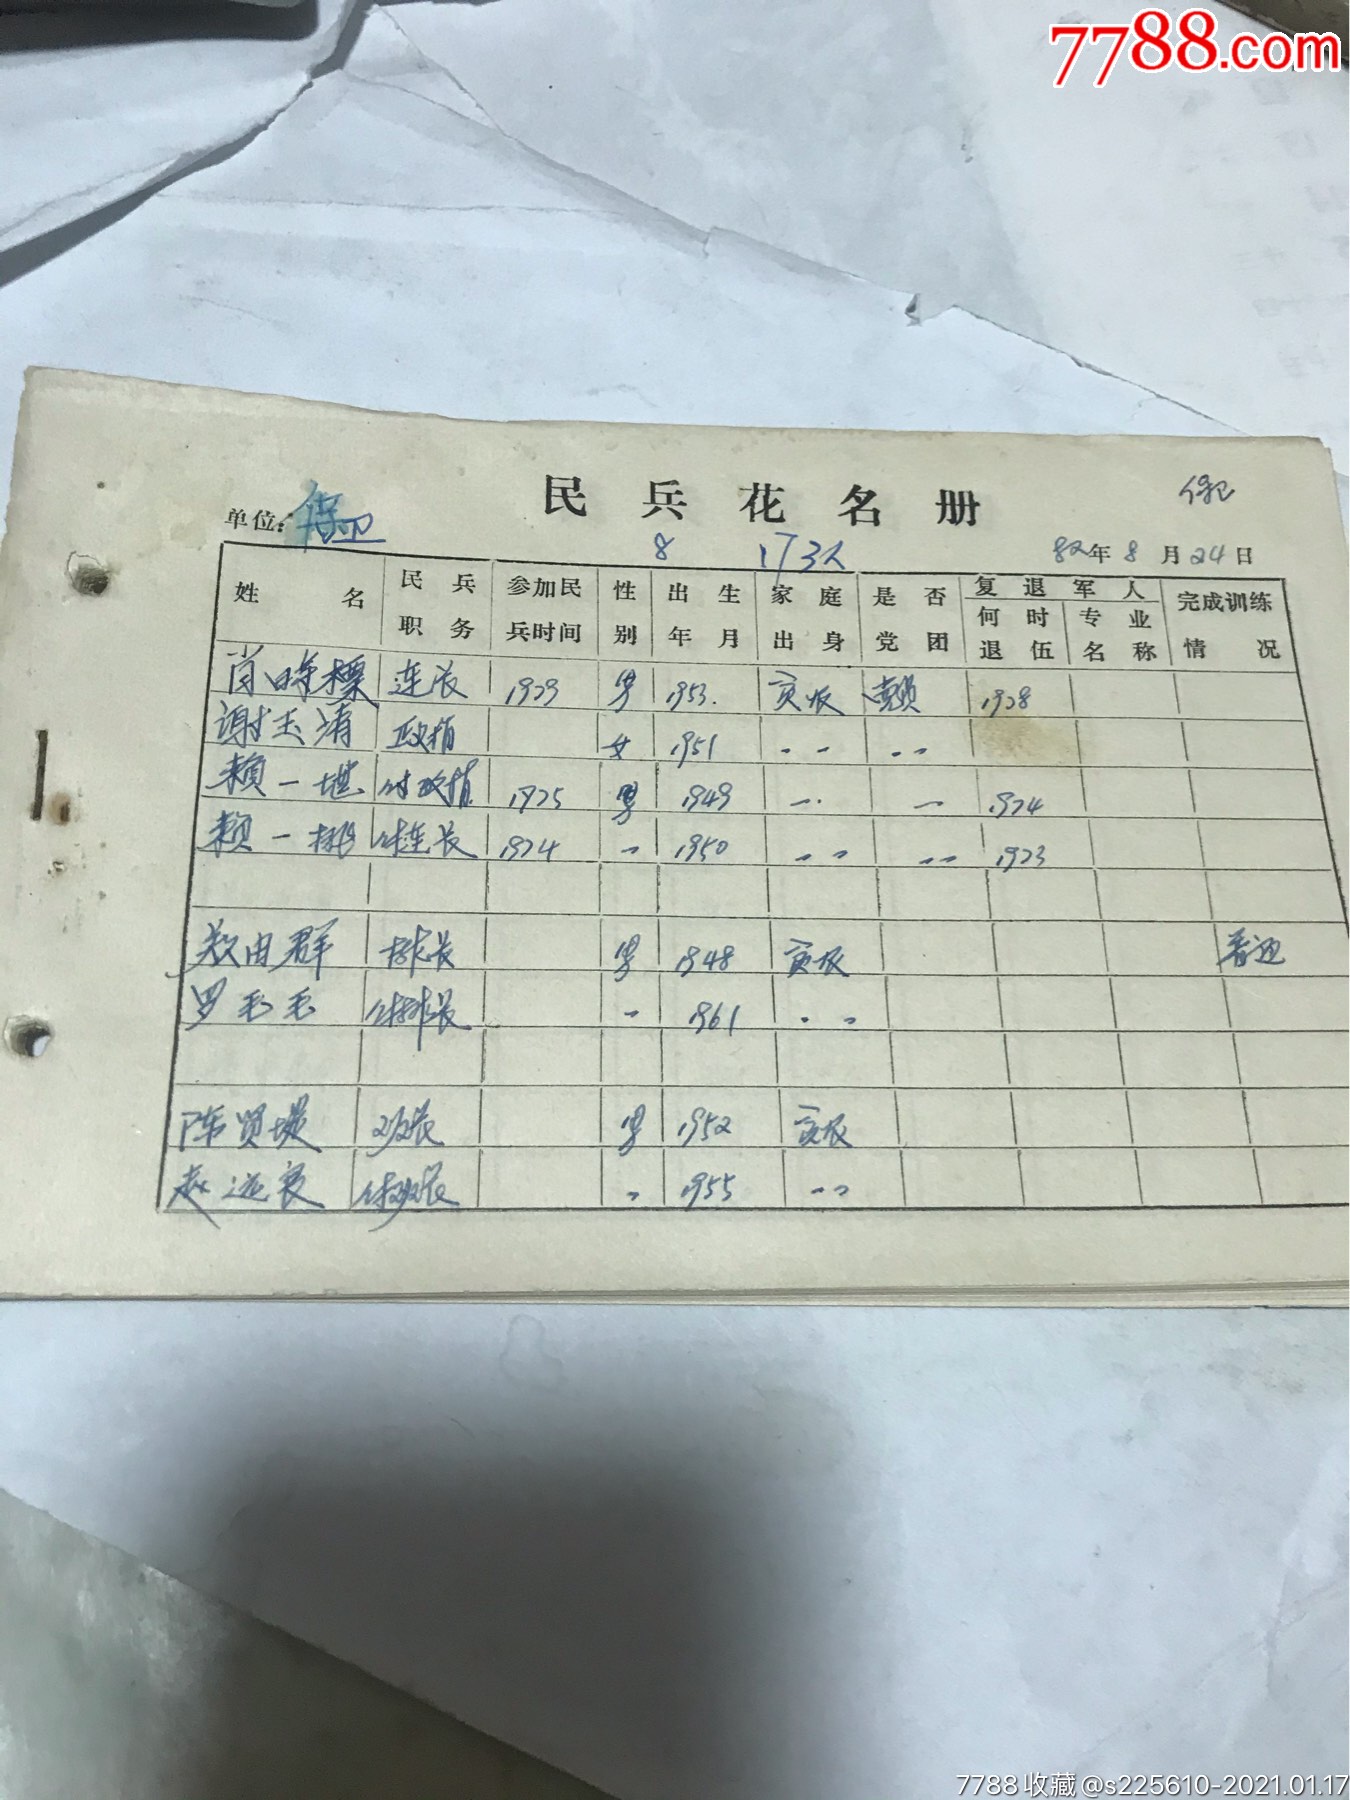 7788.com
民兵花名册
单位: 保卫
8 173人 82年8月24日
姓名 民兵职务 参加民兵时间 性别 出生年月 家庭出身 是否党团 复退军人 完成训练情况
何时退伍 专业名称
肖 连长 1979 男 1953. 贫农 1978
谢玉清 政指 女 1951 〃 〃
赖一堪 付政指 1975 男 1949 〃 〃 1974
赖一 付连长 1974 〃 1950 〃 〃 1973
郑由群 排长 男 1948 贫农
罗毛毛 付排长 〃 1961 〃
陈贤堤 班长 男 1952 贫农
赵 付班长 〃 1955 〃
7788收藏@s225610-2021.01.17